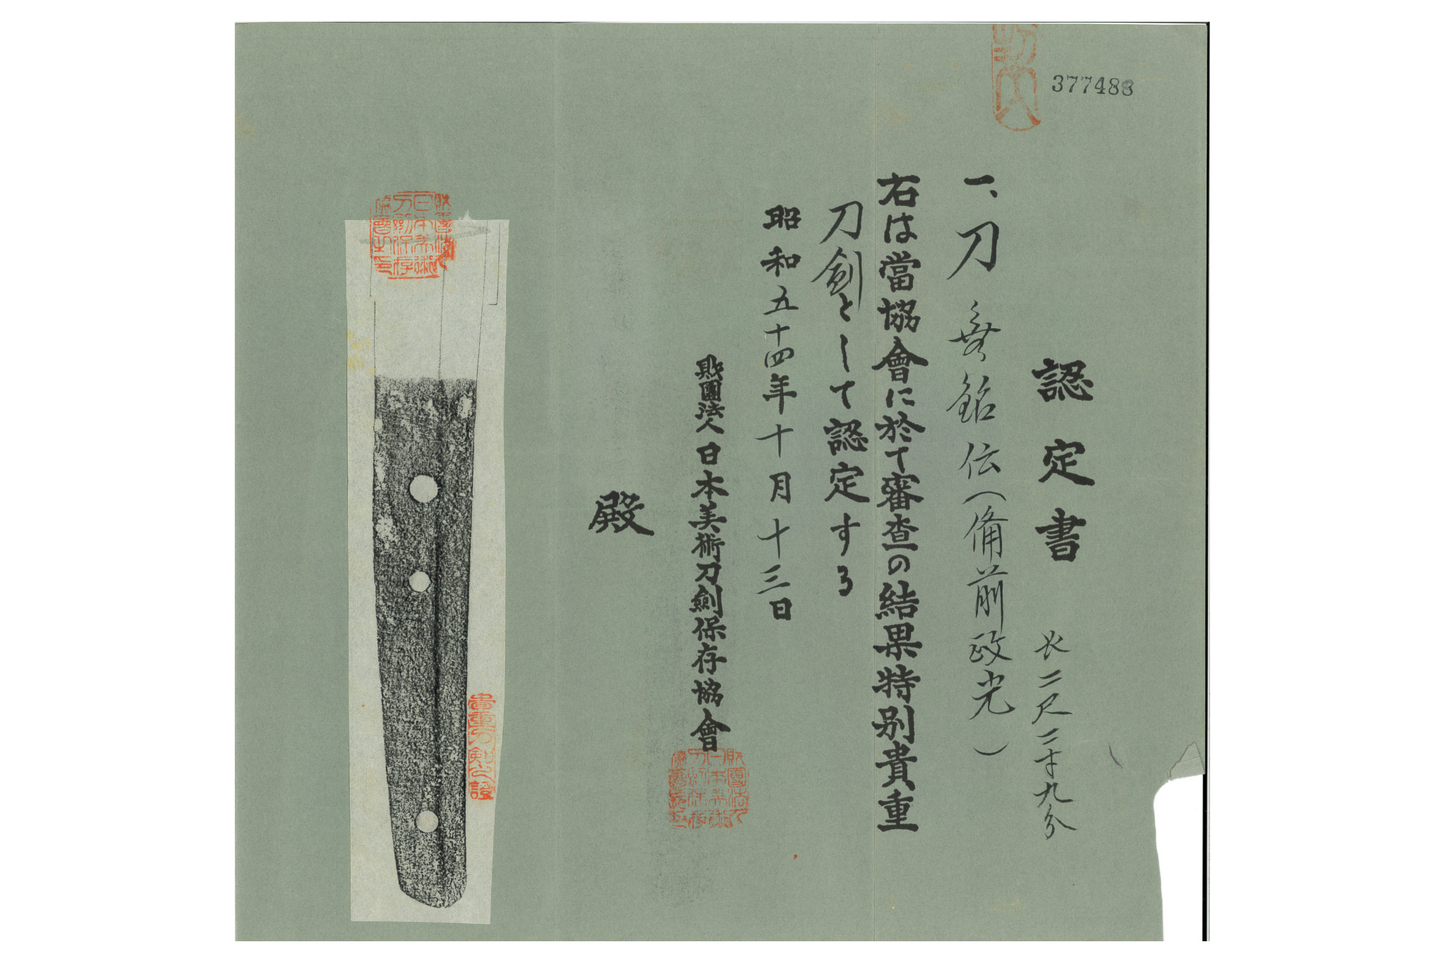 認定書
長二尺二寸九分
一、刀 無銘伝(備前政光)
右は當協會に於て審査の結果特別貴重
刀劍として認定する
昭和五十四年十月十三日
財團法人日本美術刀劍保存協會
殿
貴重刀剣之證